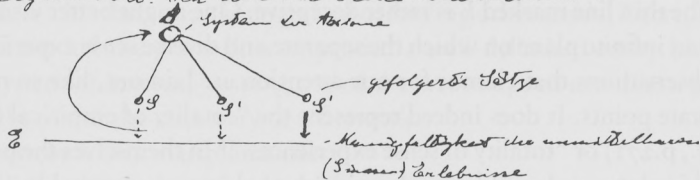 A
System der Axiome
S S' S' gefolgerte Sätze
E Mannigfaltigkeit der unmittelbaren
(Sinnes) Erlebnisse